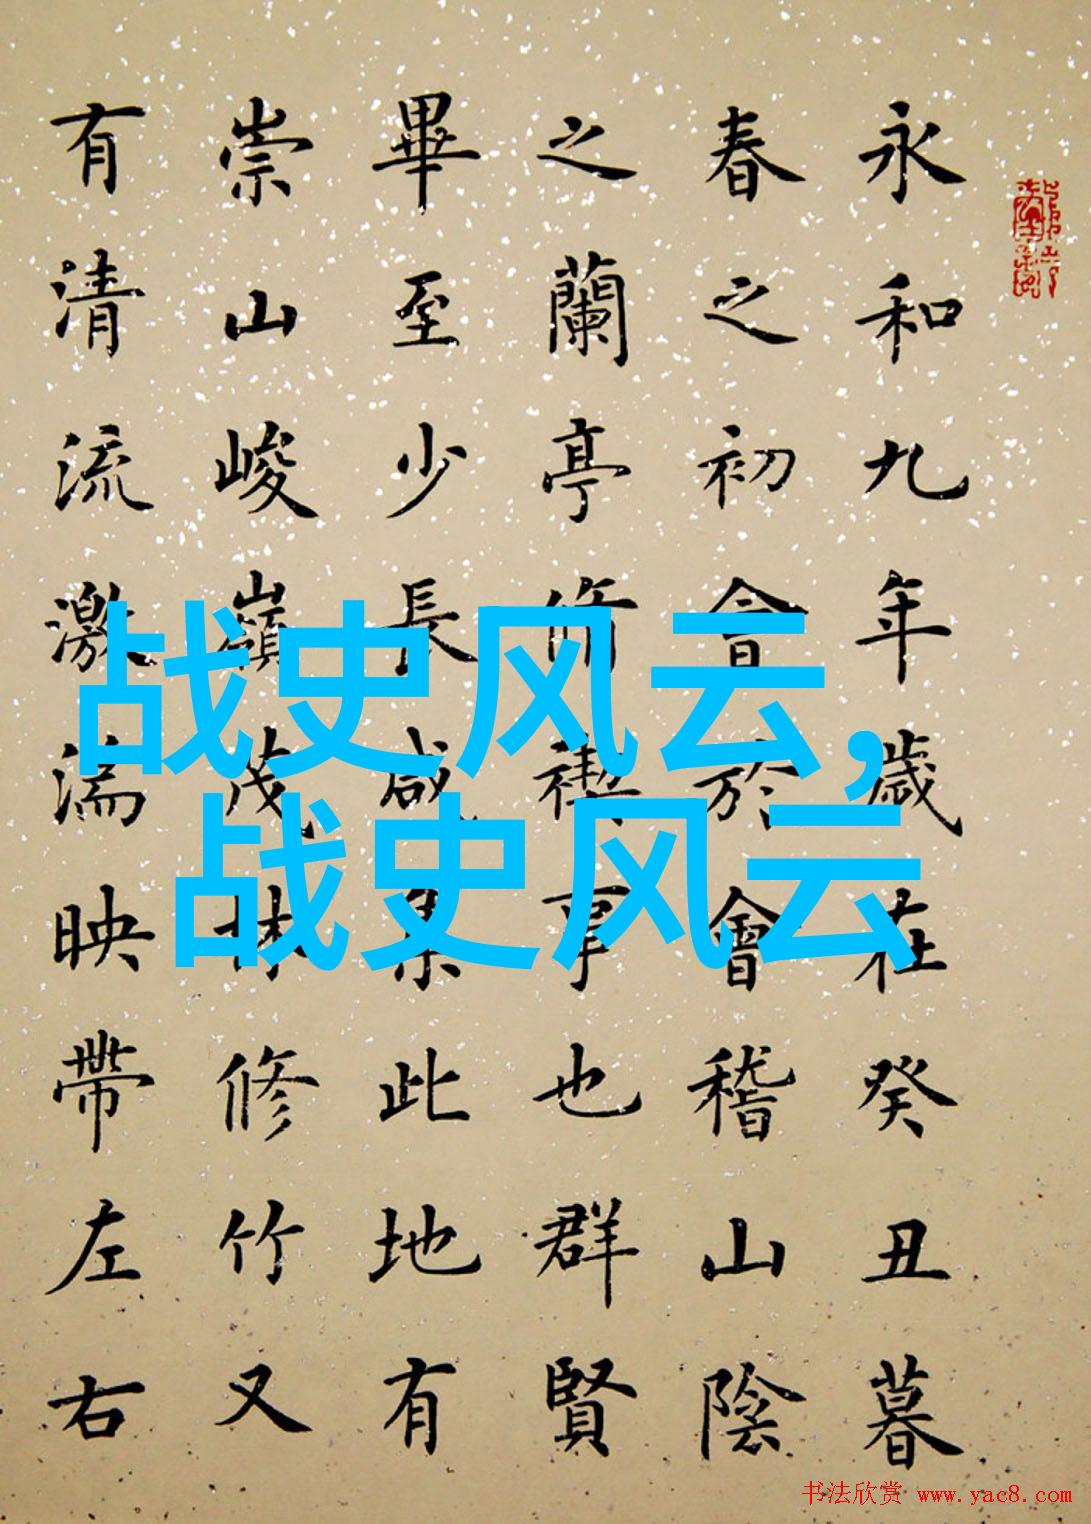 永和九年歲在癸丑暮
春之初會於會稽山陰
之蘭亭脩禊事也群賢
畢至少長咸集此地有
崇山峻嶺茂林修竹又
有清流激湍映帶左右
战史风云,
战史风云
书法欣赏 www.yac8.com